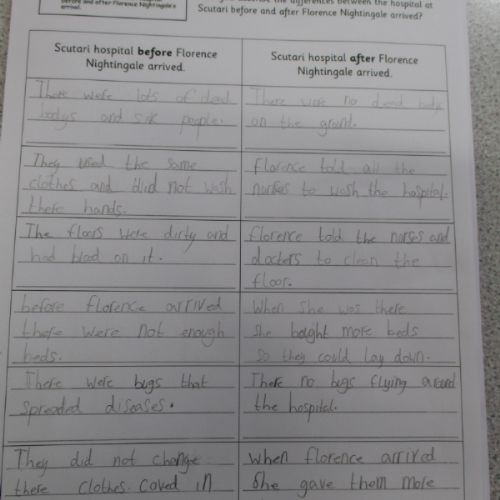 before and after Florence Nightingale's
arrival.
the differences between the hospital at
Scutari before and after Florence Nightingale arrived?
Scutari hospital before Florence
Nightingale arrived.
Scutari hospital after Florence
Nightingale arrived.
There were lots of dead
bodys and sick people.
There were no dead body
on the ground.
They used the same
clothes and did not wash
there hands.
florence told all the
nurses to wash the hospital.
The floors were dirty and
had blood on it.
florence told the norses and
docters to clean the
floor.
before florence arrived
there were not enough
beds.
When she was there
she bought more beds
so they could lay down.
There were bugs that
spreaded diseases.
There no bugs flying around
the hospital.
They did not change
there clothes coved in
When florence arrived
She gave them more